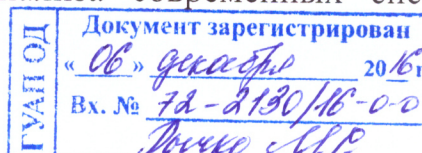 современных
ГУАП ОД
Документ зарегистрирован
«06» декабря 2016г
Вх. № 72-2130/16-0-0